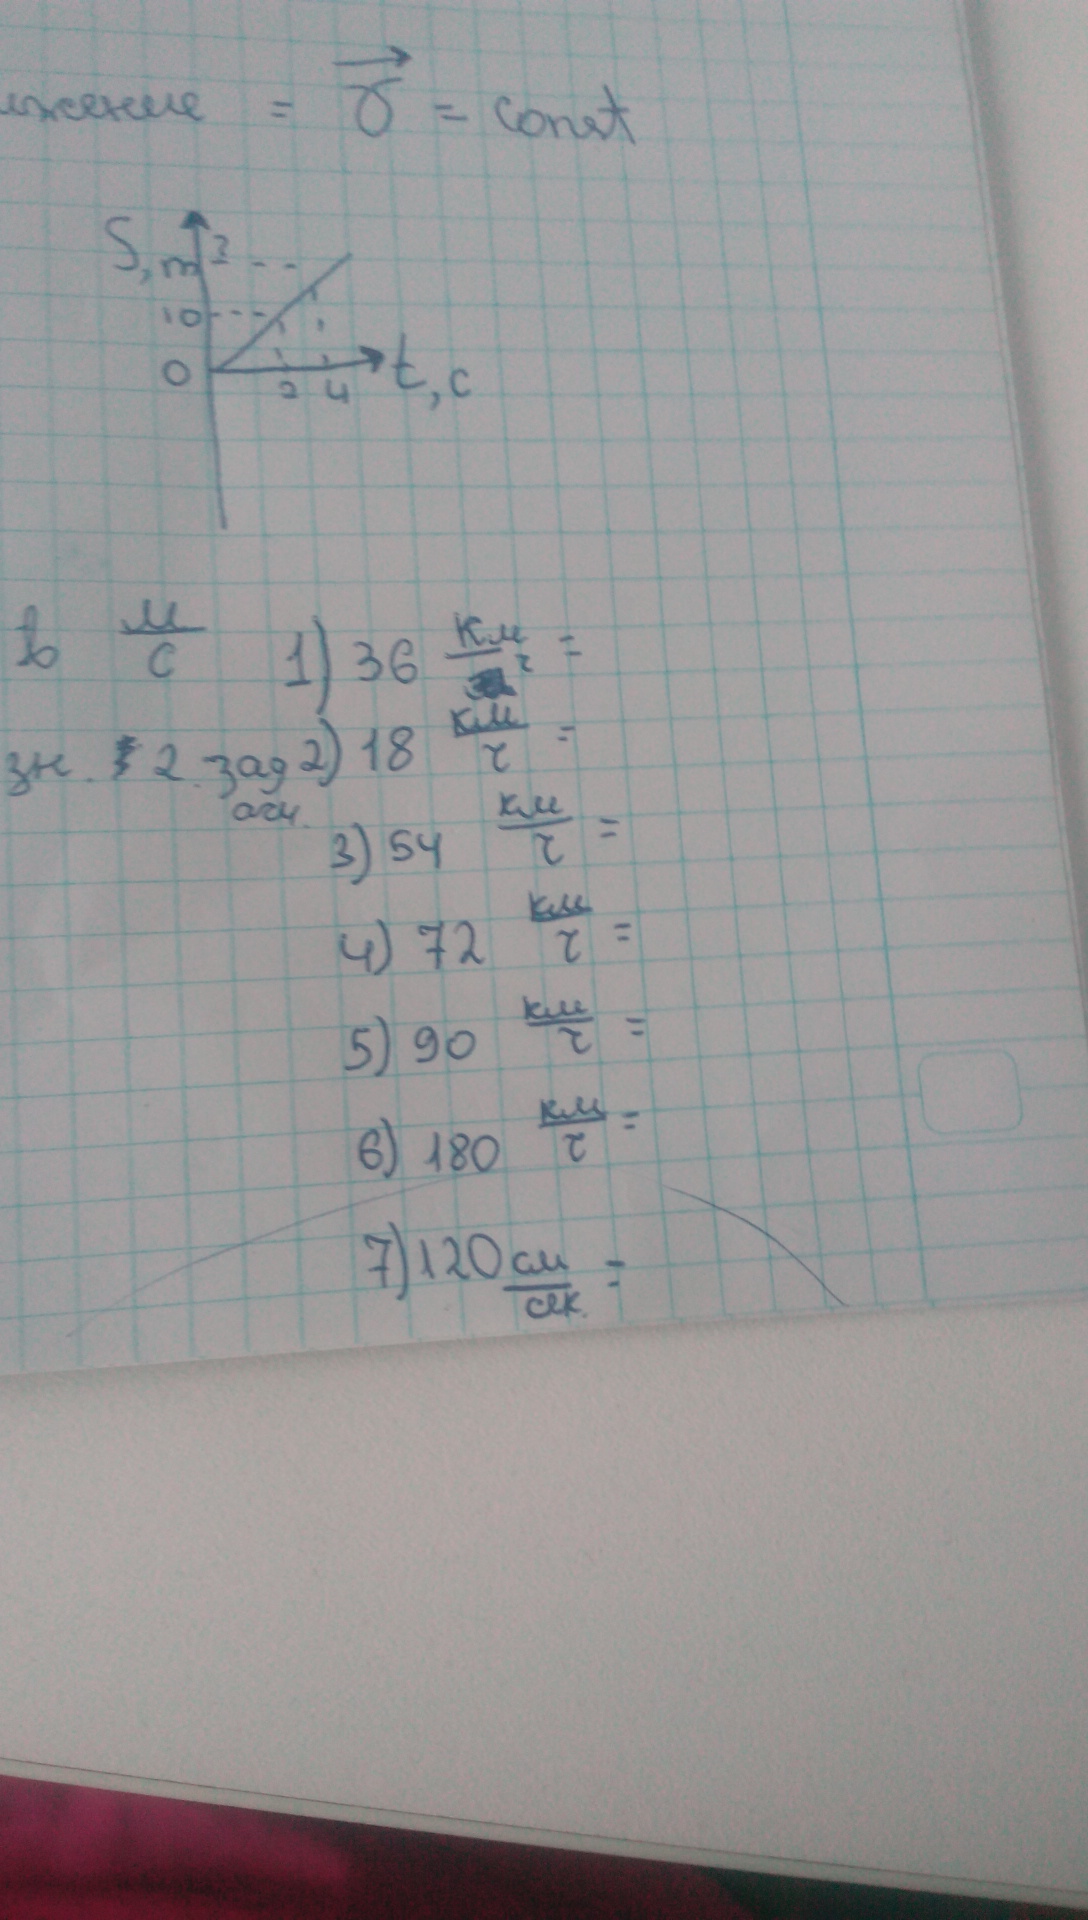 = v = const
S, m ?
10
0 2 4 t, c
в м/с 1) 36 км/ч =
2. зад 2) 18 км/ч =
3) 54 км/ч =
4) 72 км/ч =
5) 90 км/ч =
6) 180 км/ч =
7) 120 см/сек. =